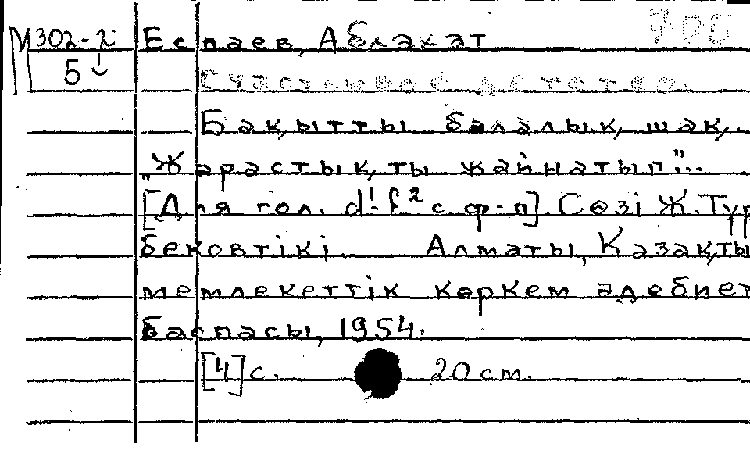 М302-2 Еспаев, Аблакат 700
5 Счастливое детство.
Бақытты балалық шақ.
„Жарастықты жайнатып"...
[Для гол. d¹-f² с ф-п]. Сөзі Ж. Тұр
бековтікі. Алматы, Қазақты
мемлекеттік көркем әдебиет
баспасы, 1954.
[4] с. 20 см.